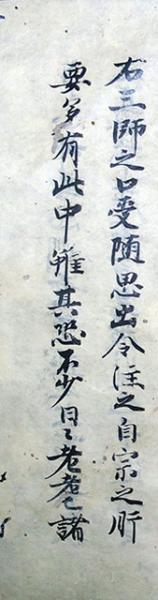 右三師之口受随思出令注之自宗之所
要多有此中雖其恐不少日々老耄諸